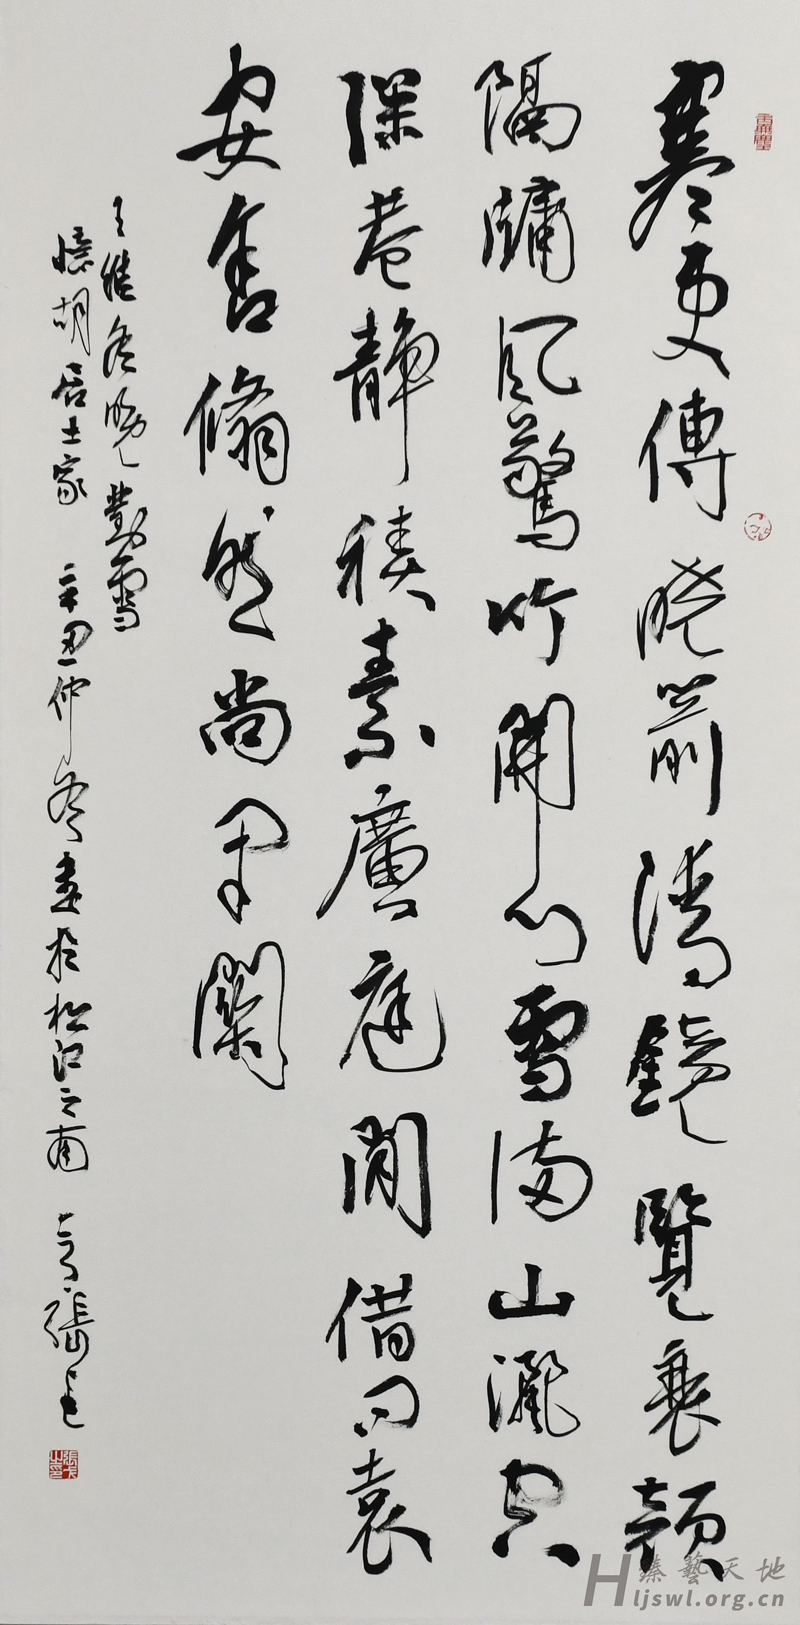 寒更傳曉箭清鏡覽衰顏
隔牖風驚竹開門雪滿山灑空
深巷静積素廣庭閒借問袁
安舍翛然尚閉關
王維冬晚對雪
憶胡居士家 辛丑仲冬書於松江之南 張
臻藝天地
Hljswl.org.cn